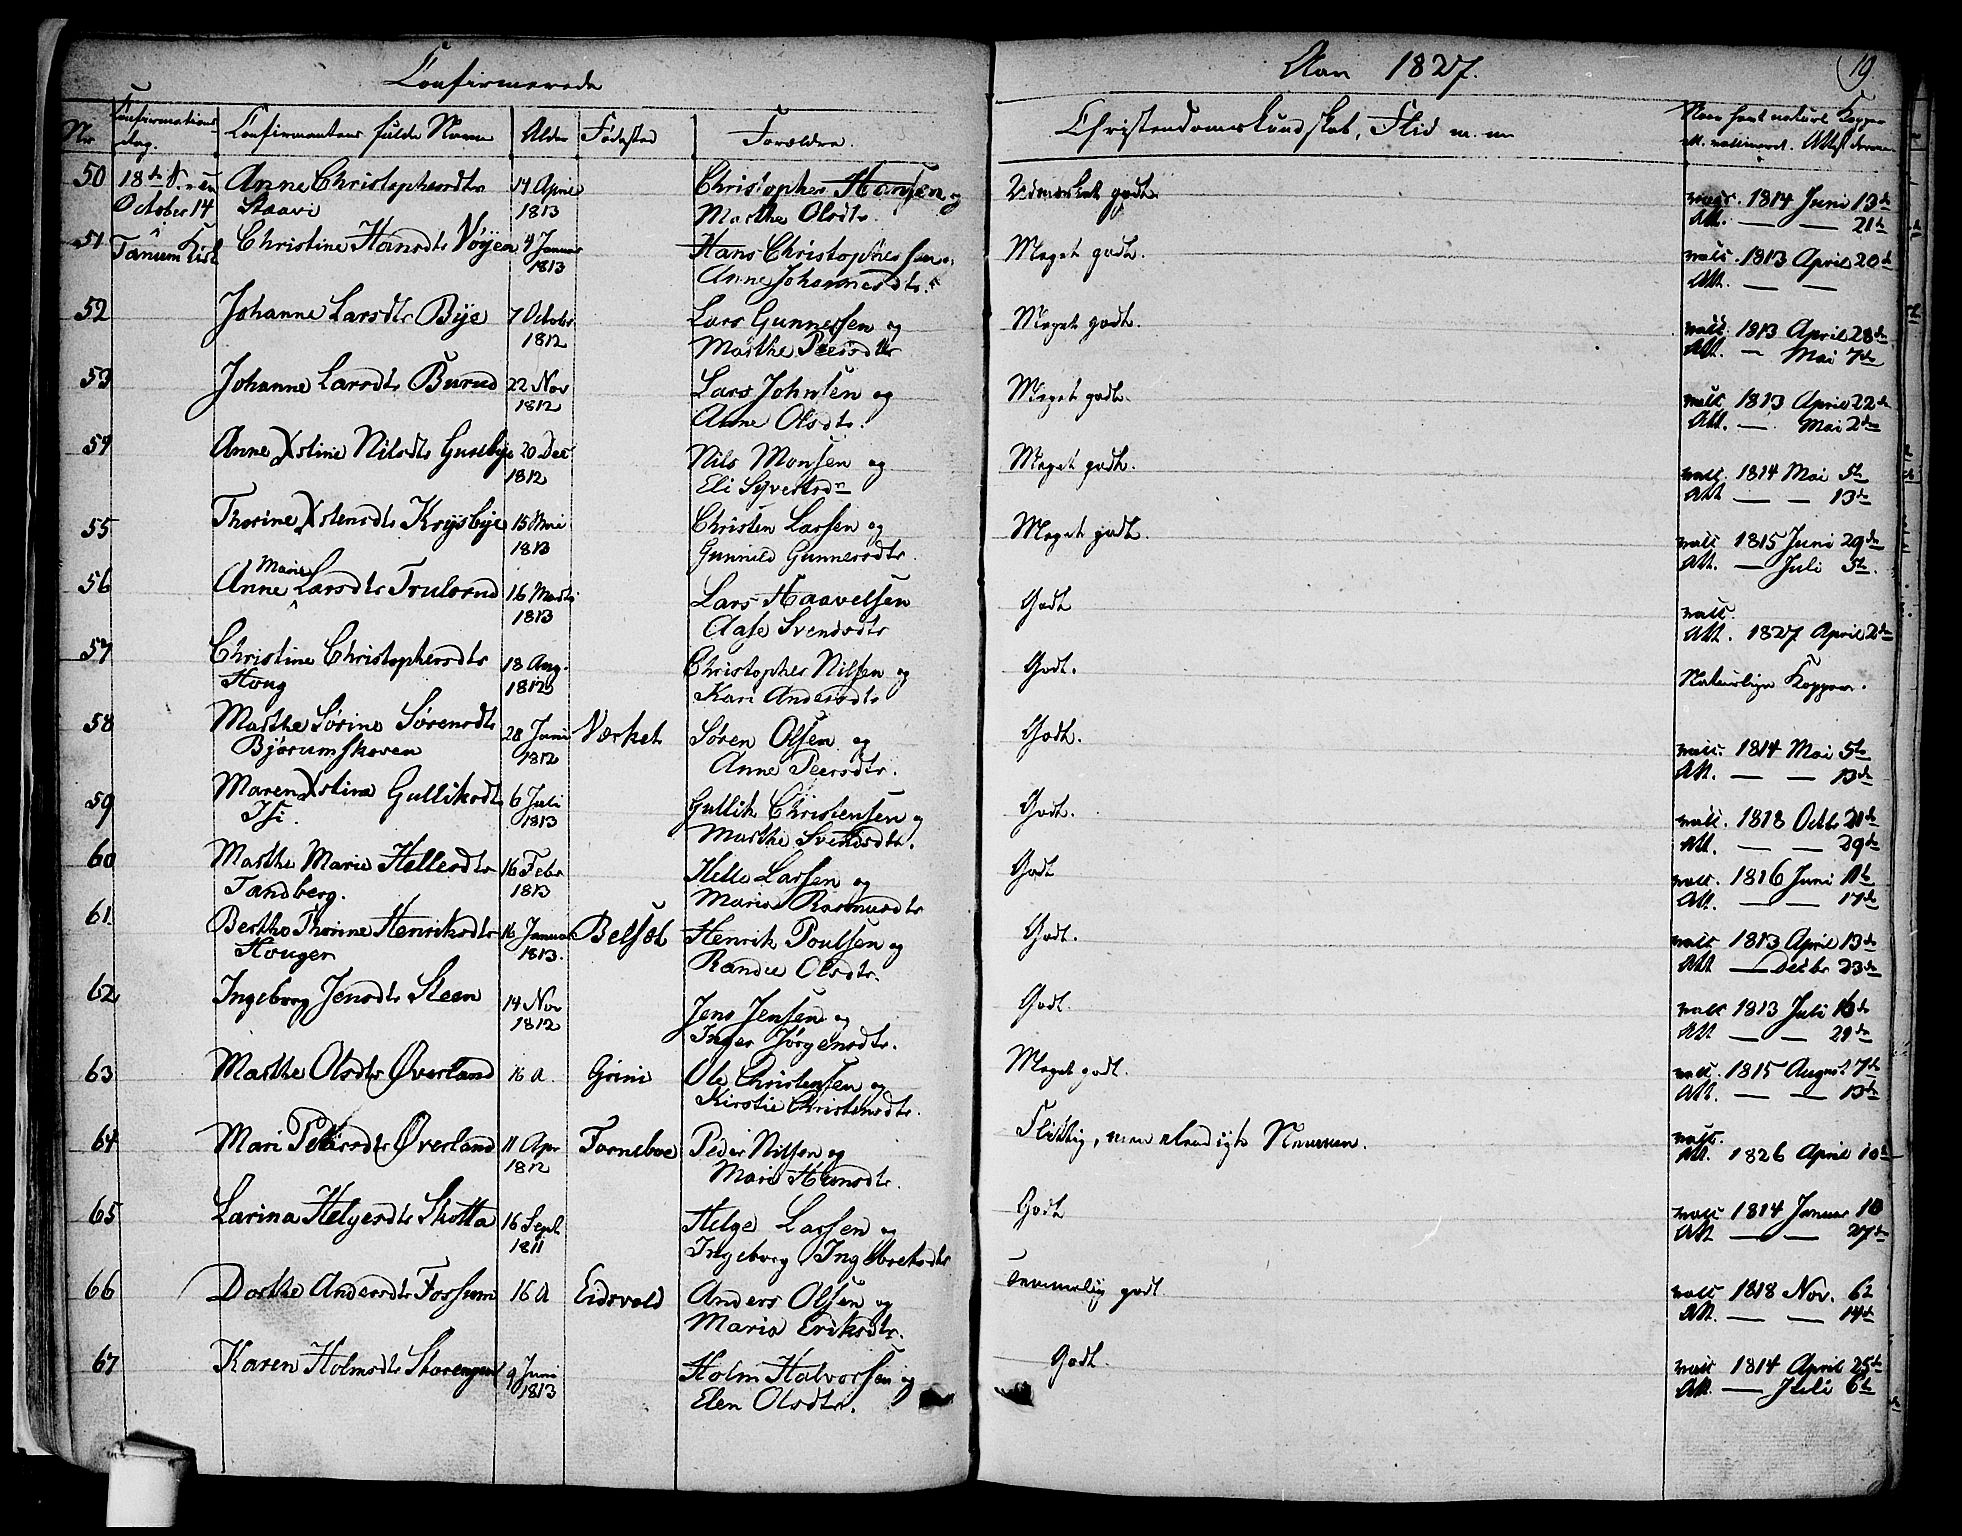 Confirmerede
Aar 1827.
19
Nr
Confirmations dag.
Confirmantens fulde Navn
Alder
Fødested
Forældre.
Christendomskundskab, Flid m. m
Naar havt naturl Kopper
ell. vaccineret. Attest derom
50 18de S. e Tri Anne Christophersdtr 14 April Christopher Hansen og Udmærket godt. vacc. 1814 Juni 13de
October 14 Staavi 1813 Marthe Olsdtr. Att. — — 21de
51 Tanum Kirke Christine Hansdtr Vøyen 4 Januar Hans Christophersen og Meget godt. vacc. 1813 April 20de
1813 Anne Johannesdtr. Att. — —
52 Johanne Larsdtr Bye 7 Octobr Lars Gunnersen og Meget godt. vacc. 1813 April 28de
1812 Marthe Peersdtr Att. — Mai 7de
53 Johanne Larsdtr Burud 22 Nov Lars Johnsen og Meget godt. vacc. 1813 April 22de
1812 Anne Olsdtr. Att. — Mai 2den
54 Anne Xstine Nilsdtr Gusebye 20 Dec Nils Monsen og Meget godt. vacc. 1814 Mai 5te
1812 Eli Syvertsdr Att — — 13de
55 Thorine Xstensdtr Krysbye 15 Mai Christen Larsen og Meget godt. vacc 1815 Juni 29de
1813 Gunnild Gunnersdtr. Att. — Juli 5te.
56 Anne Marie Larsdtr Trulsrud 16 Marts Lars Haavelsen Godt vacc.
1813 Aase Svendsdtr Att. 1827 April 2de
57 Christine Christophersdtr 18 Aug. Christopher Nilsen og Godt. Naturlige Kopper.
Houg 1812 Kari Andersdtr
58 Marthe Sørine Sørensdtr 28 Juni Værket Søren Olsen og Godt. vacc. 1814 Mai 5te
Bjørumskoven 1812 Anne Peersdtr. Att. — — 13de
59 Maren Xstine Gulliksdtr 6 Juli Gullik Christensen og Godt. vacc. 1818 Octbr 21de
Isi. 1813 Marthe Svendsdtr. Att. — — 29de
60 Marthe Marie Hellesdtr 16 Febr Helle Larsen og Godt vacc. 1816 Juni 11te
Tandberg. 1813 Maria Rasmusdtr Att. — — 17de
61. Berthe Thorine Henriksdtr 16 Januar Belset Henrik Poulsen og Godt. vacc 1813 April 13de
Houger 1813. Randie Olsdtr. Att — Decbr 23de
62 Ingeborg Jensdtr Steen 14 Nov Jens Jensen og Godt. vacc 1813 Juli 16de
1812 Inger Jørgensdtr. Att — 29de
63 Marthe Olsdtr Øverland 16 A. Grini Ole Christensen og Meget godt. vacc. 1815 August 7de
Kirstie Christensdtr. Att. — — 13de
64 Mari Pedersdtr Øverland 11 Apr Forneboe Peder Nilsen og Flittig, men Nemme. vacc.
1812 Mari Hansdtr. Att. 1826 April 10de
65 Larina Helgesdtr Skotta 16 Sept Helge Larsen og Godt vacc 1814 Januar 10
1811 Ingeborg Ingebretsdtr Att — — 27de
66 Dorthe Andersdtr Fossum 16 A Eidsvold Anders Olsen og Temmelig godt vacc 1818 Nov. 6te
Maria Eriksdtr. Att. — — 14de
67 Karen Holmsdtr Storengen 9 Juni Holm Halvorsen og Godt. vacc 1814 April 25de
1813 Elen Olsdtr. Att. — Juli 6te